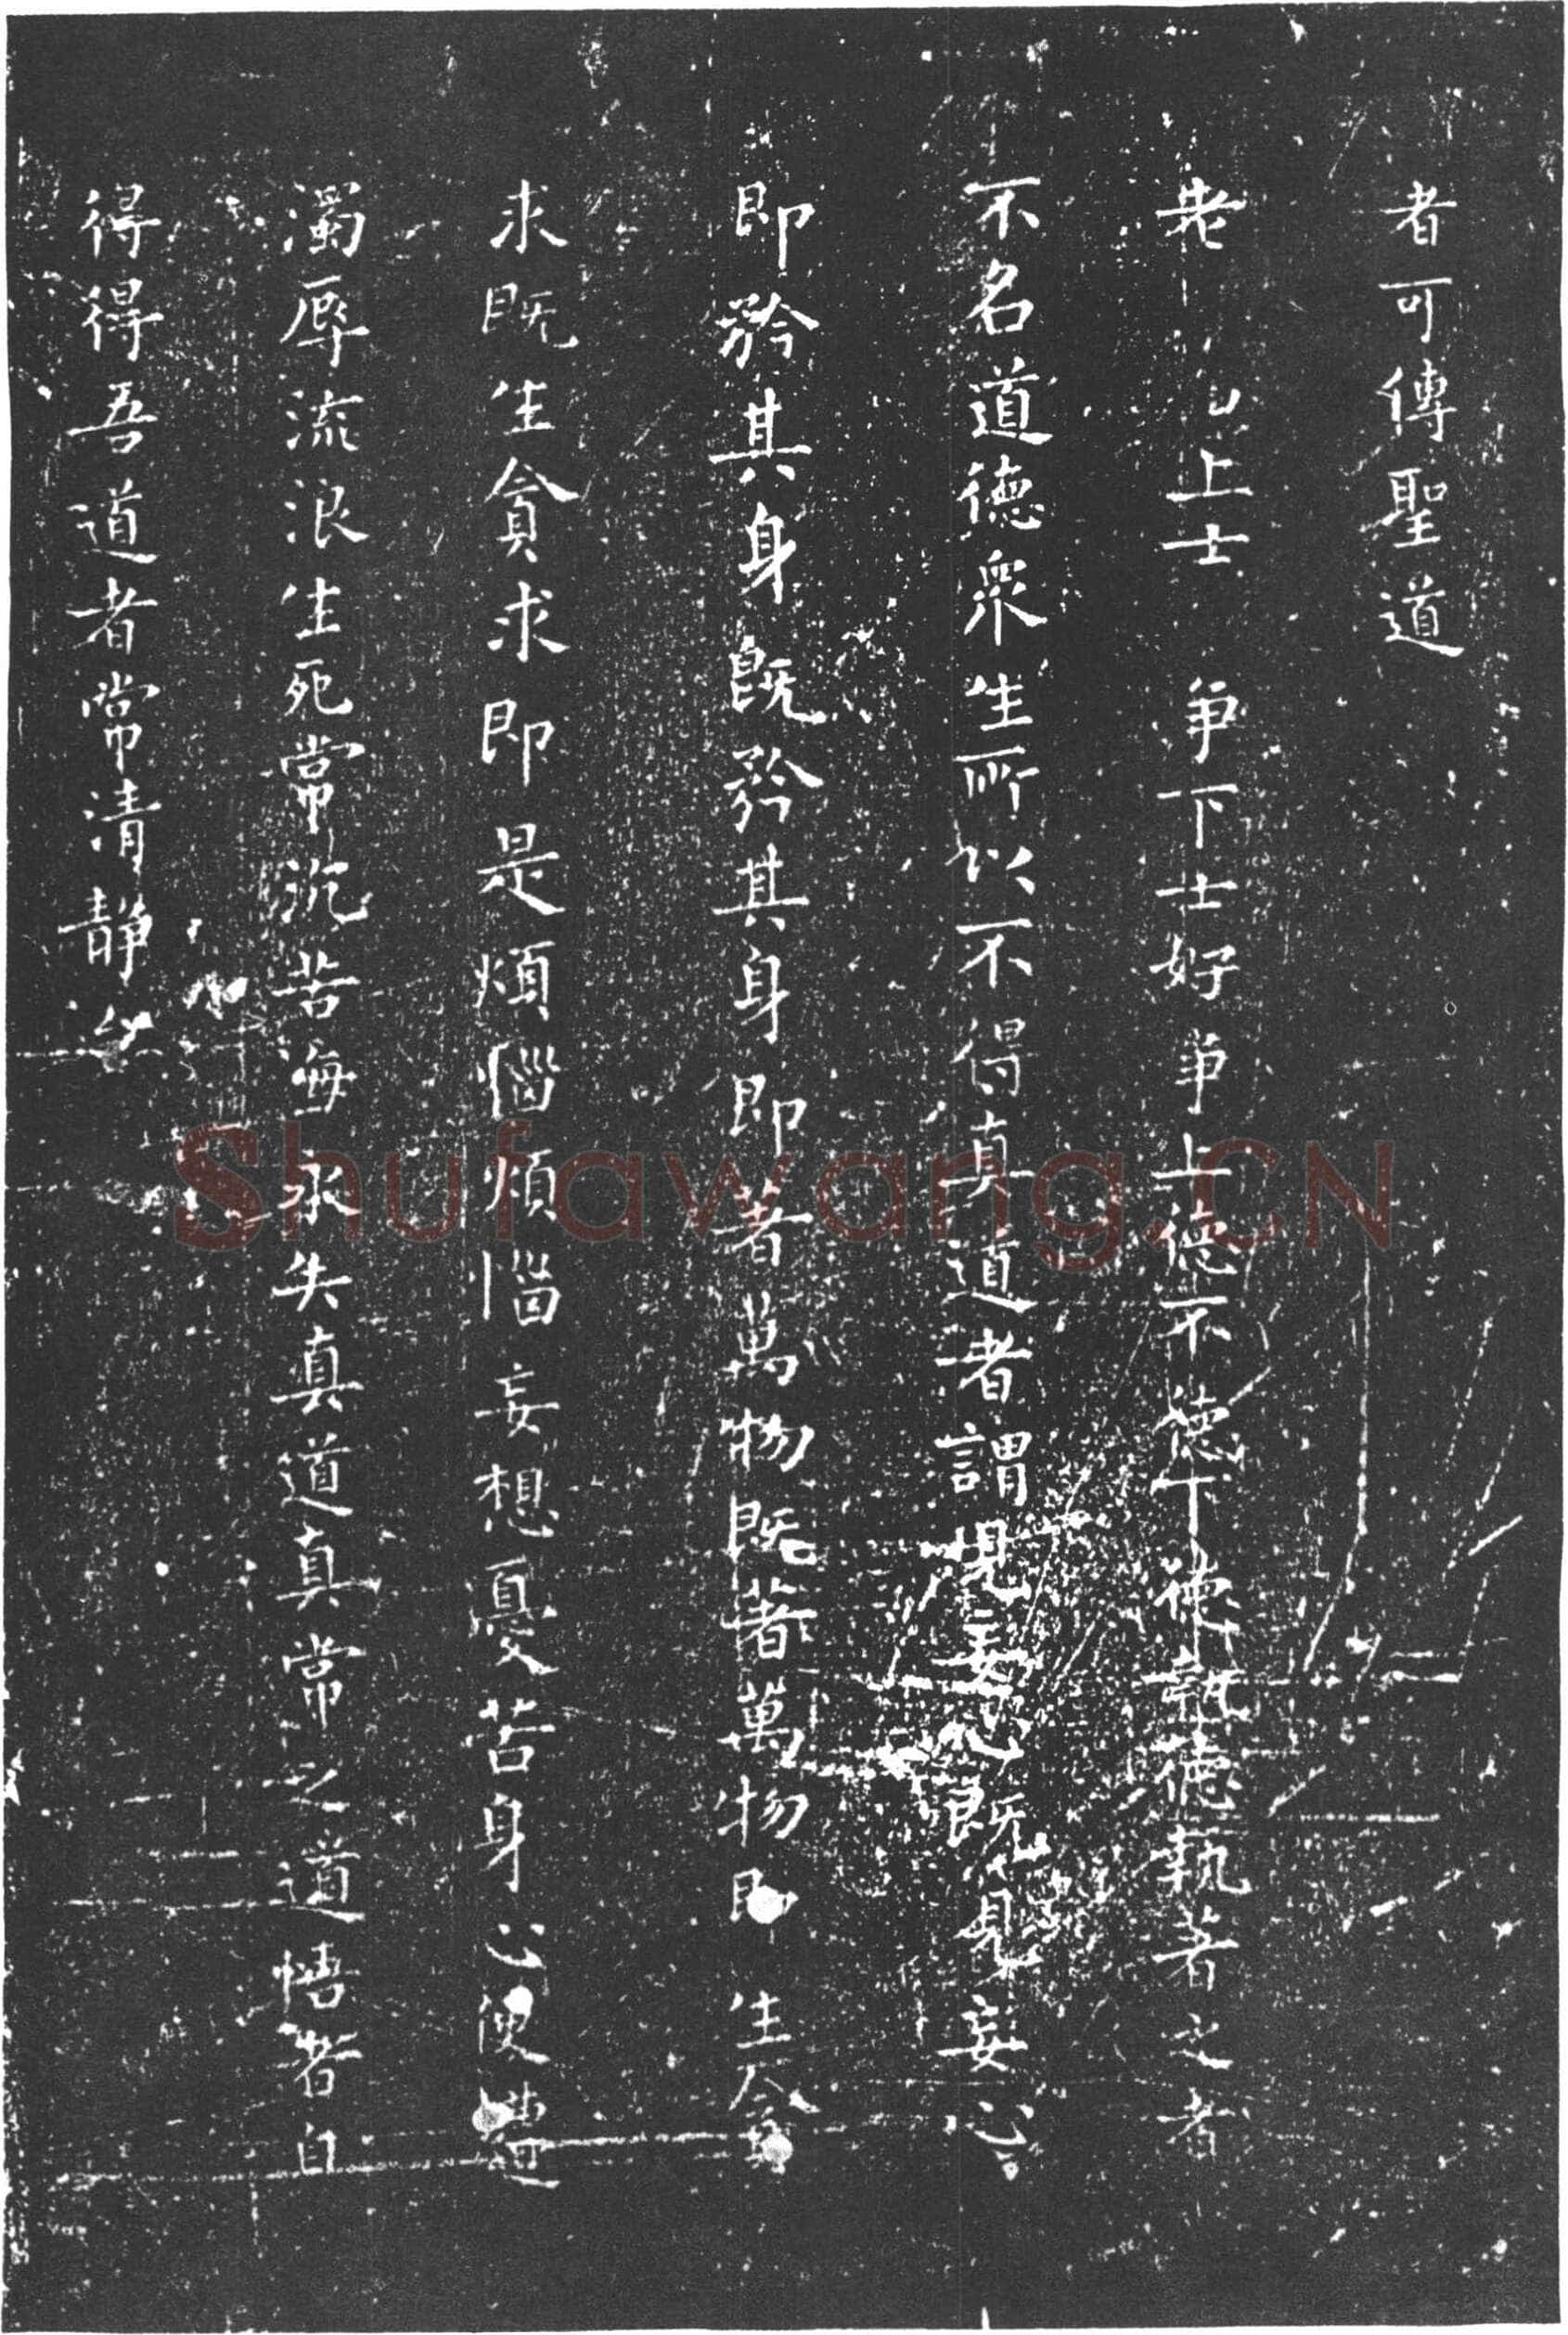 者可傳聖道
老上士爭下士好爭上德不德下德執德執著之者
不名道德眾生所以不得真道者謂妄心既見妄心
即矜其身既矜其身即著萬物既著萬物即生貪
求既生貪求即是煩惱煩惱妄想憂苦身心便遭
濁辱流浪生死常沉苦海永失真道真常之道悟者自
得得吾道者常清静矣
Shufawang.CN